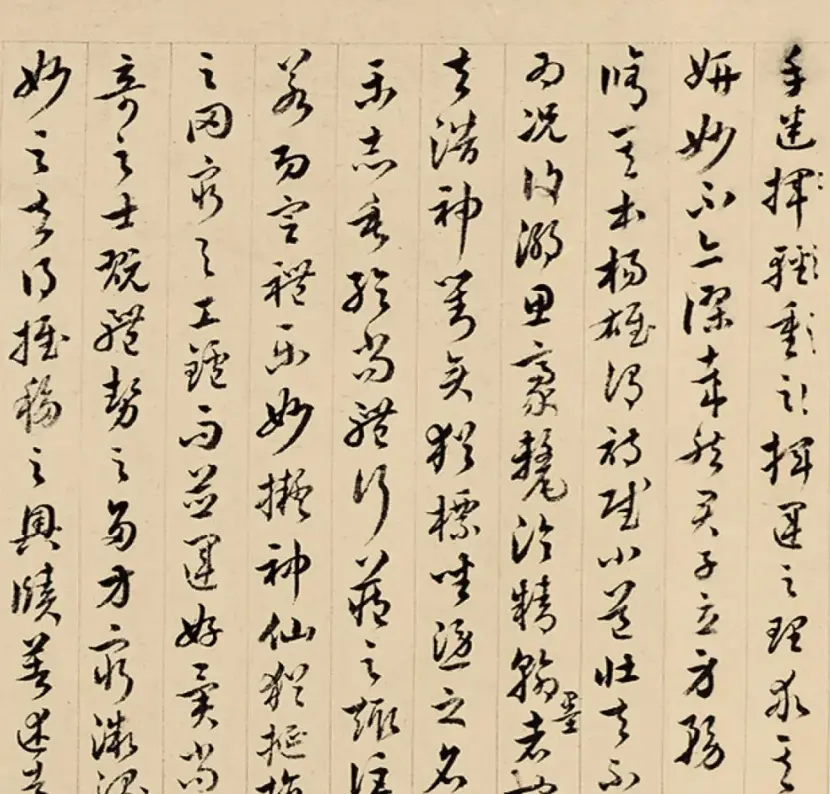 手迷揮輕重之揮運之理求其
妍妙不亦謬哉然君子立身務
脩其本楊雄謂詩賦小道壯夫不
為況復溺思豪氂淪精翰墨者也
夫潛神對奕猶標坐隱之名
樂志垂綸尚體行藏之趣詎
若功宣禮樂妙擬神仙猶埏埴
之罔窮與工鑪而並運好異尚
奇之士翫體勢之多方窮微測
妙之夫得推移之奧賾著述者